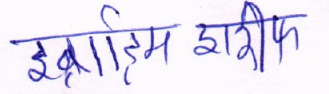 इब्राहिम शरीफ